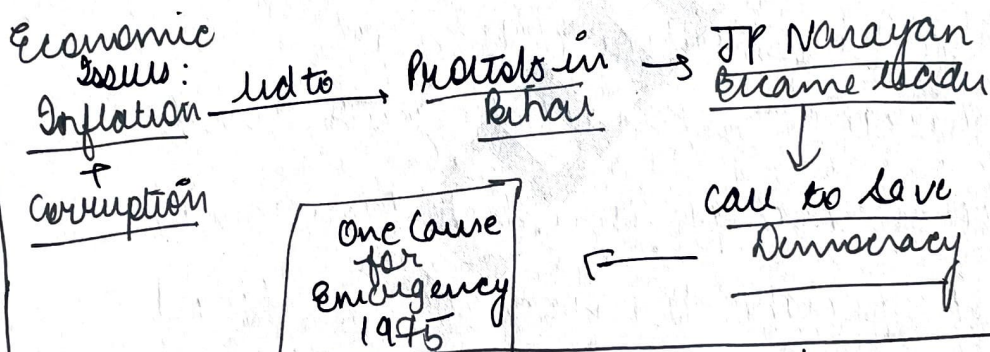 Economic
Issues:
Inflation
+
Corruption
led to
Protests in
Bihar
JP Narayan
became leader
call to save
Democracy
One Cause
for
Emergency
1975